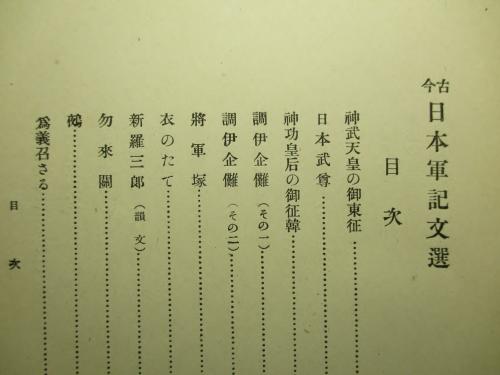 古今日本軍記文選
目次
神武天皇の御東征
日本武尊
神功皇后の御征韓
調伊企儺（その一）
調伊企儺（その二）
將軍塚
衣のたて
新羅三郎（韻文）
勿來關
鵺
爲義召さる
目次